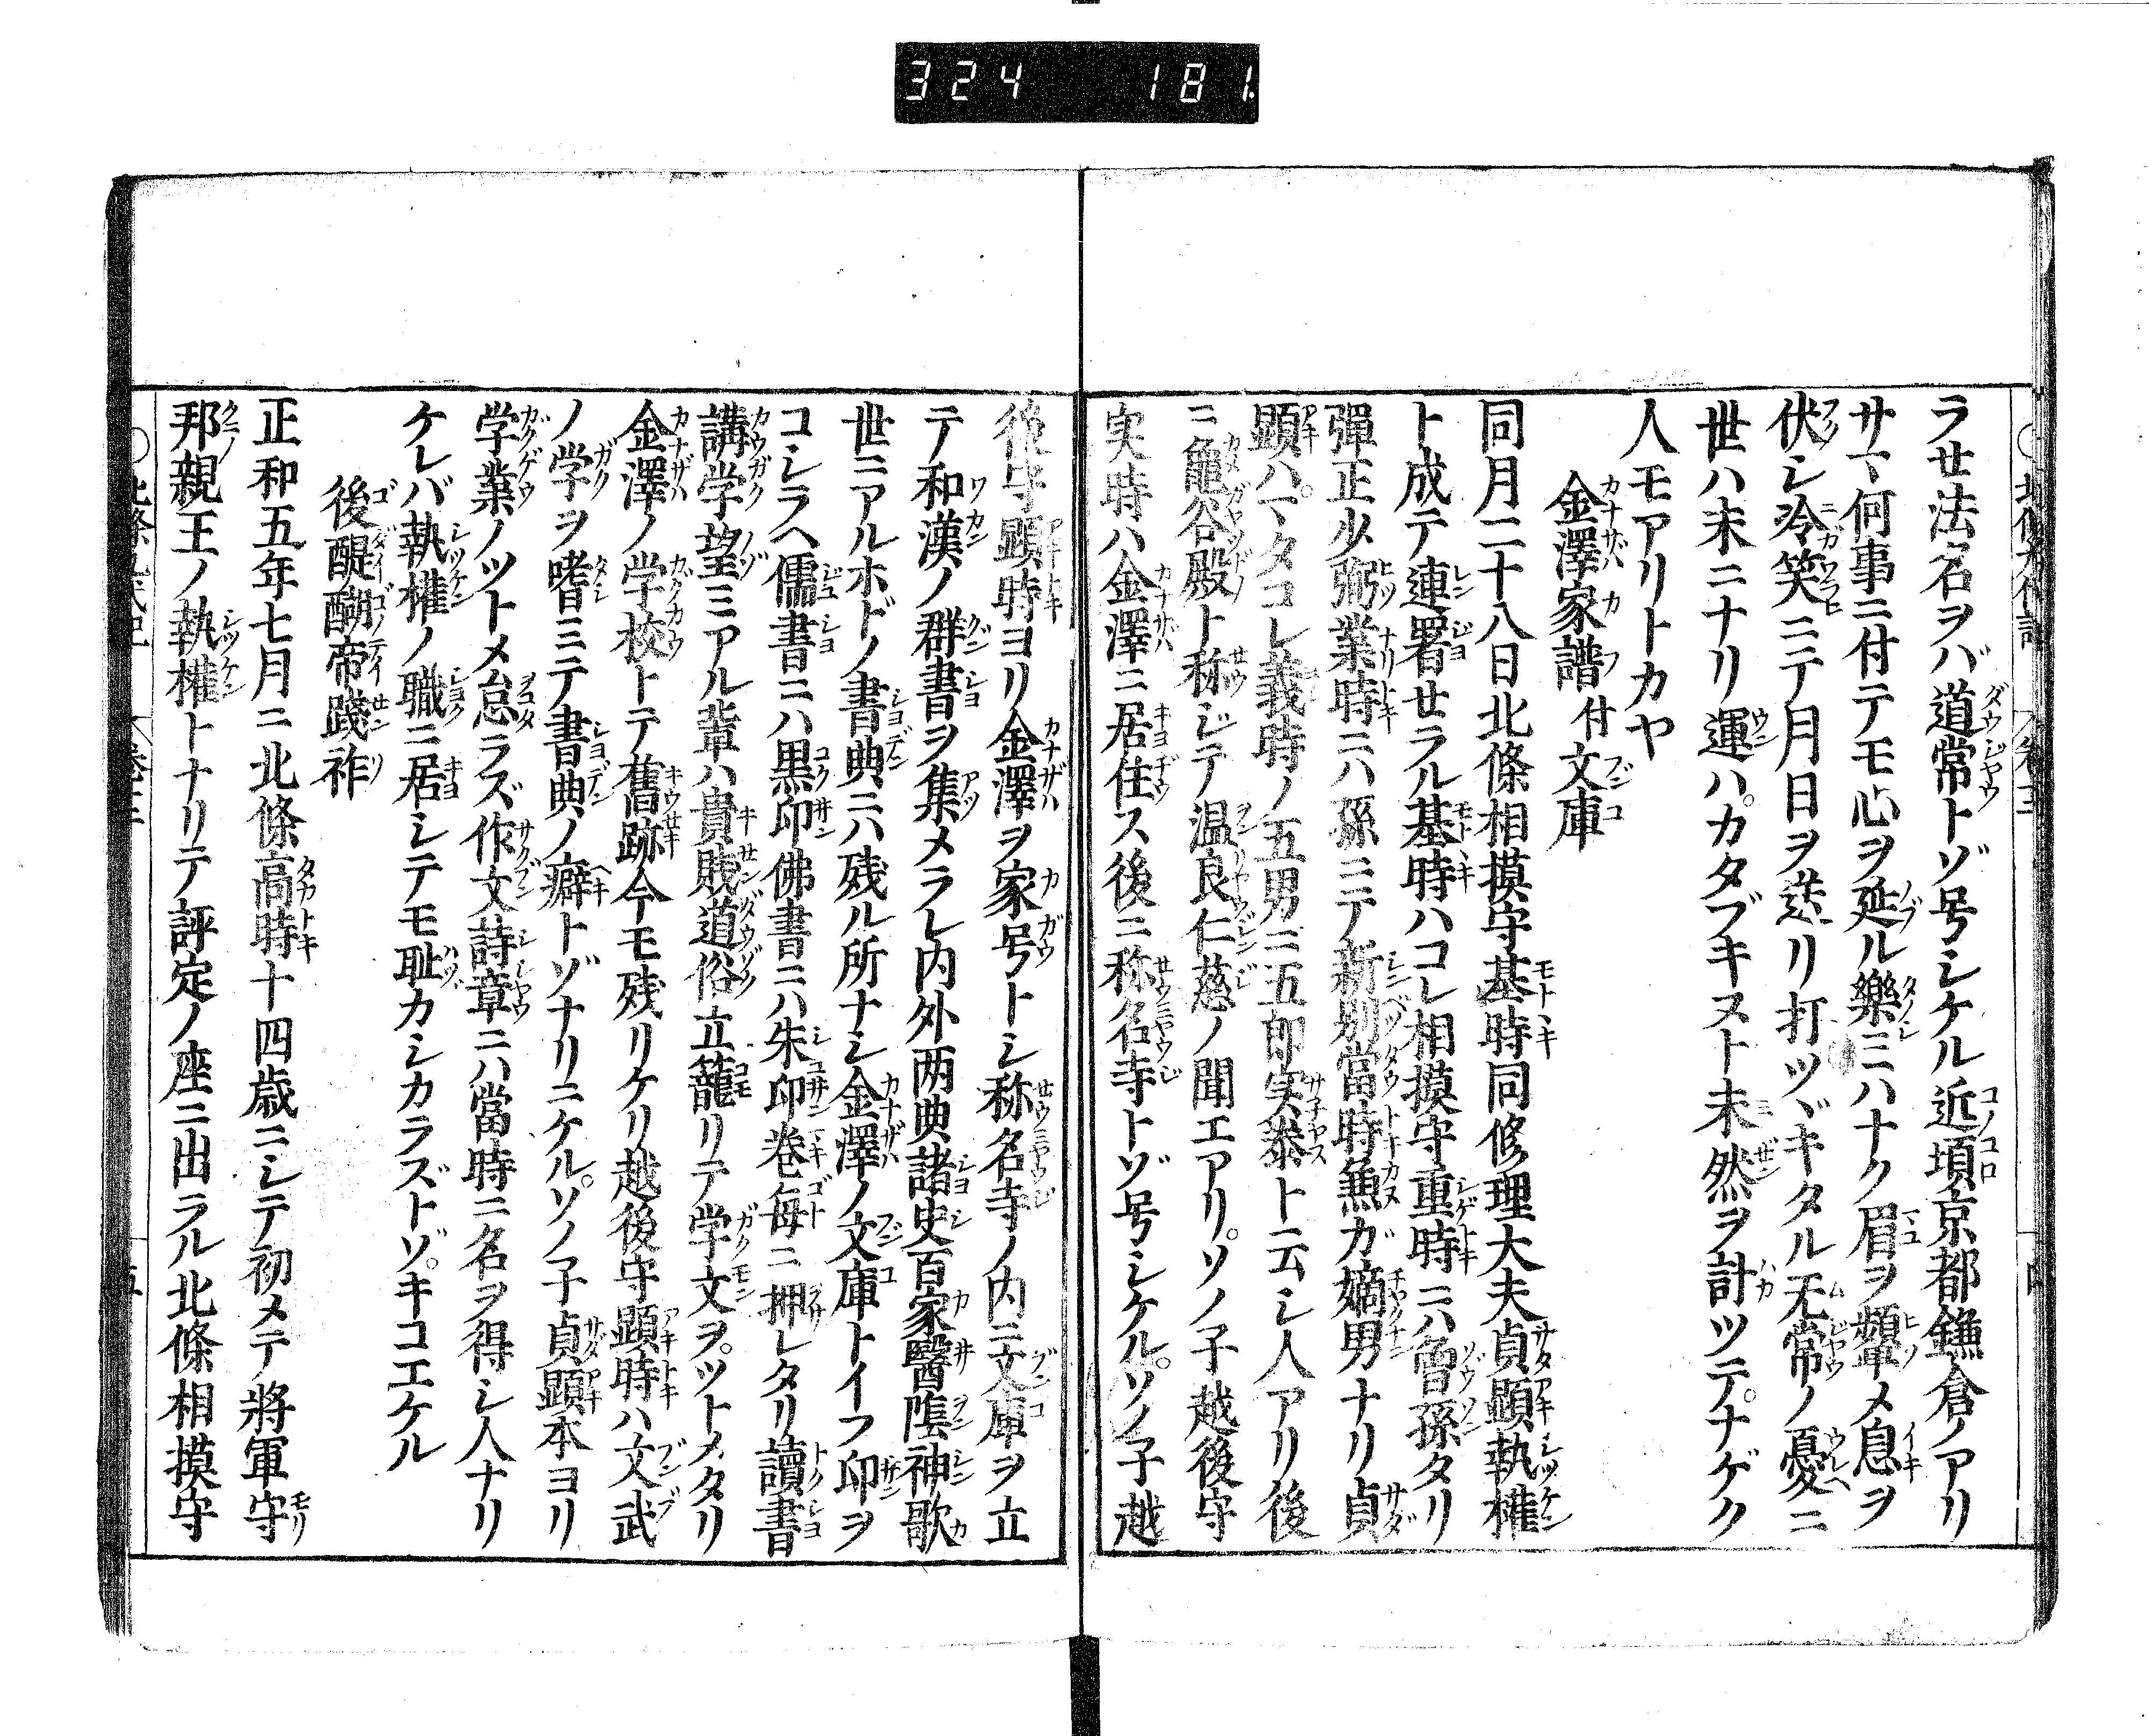 324 181
ラせ法名ヲバ道常トゾ号シケル近頃京都鎌倉ノアリ
サマ何事ニ付テモ心ヲ延ル樂ミハナク眉ヲ顰メ息ヲ
伏シ冷笑ニテ月日ヲ送リ打ツヾキタル无常ノ憂ニ
世ハ末ニナリ運ハカタブキヌト未然ヲ計ツテナゲク
人モアリトカヤ
金澤家譜付文庫
同月二十八日北條相摸守基時同修理大夫貞顕執權
ト成テ連署せラル基時ハコレ相摸守重時ニハ曾孫タリ
彈正少弼業時ニハ孫ニテ新別當時兼ガ嫡男ナリ貞
顕ハマタコレ義時ノ五男ニ五郎実泰ト云シ人アリ後
ニ龜谷殿ト称ジテ温良仁慈ノ聞エアリソノ子越後守
実時ハ金澤ニ居住ス後ニ称名寺トゾ号シケルソノ子越
後守顕時ヨリ金澤ヲ家号トシ称名寺ノ内ニ文庫ヲ立
テ和漢ノ群書ヲ集メラレ内外两典諸史百家醫隂神歌
世ニアルホドノ書典ニハ残ル所ナシ金澤ノ文庫トイフ印ヲ
コシラヘ儒書ニハ黒印佛書ニハ朱印巻毎ニ押レタリ讀書
講学望ミアル輩ハ貴賎道俗立籠リテ学文ヲツトメタリ
金澤ノ学校トテ舊跡今モ残リケリ越後守顕時ハ文武
ノ学ヲ嗜ミテ書典ノ癖トゾナリニケルソノ子貞顕本ヨリ
学業ノツトメ怠ラズ作文詩章ニハ當時ニ名ヲ得シ人ナリ
ケレバ執權ノ職ニ居シテモ耻カシカラズトゾキコエケル
後醍醐帝踐祚
正和五年七月ニ北條高時十四歳ニシテ初メテ將軍守
邦親王ノ執權トナリテ評定ノ座ニ出ラル北條相摸守